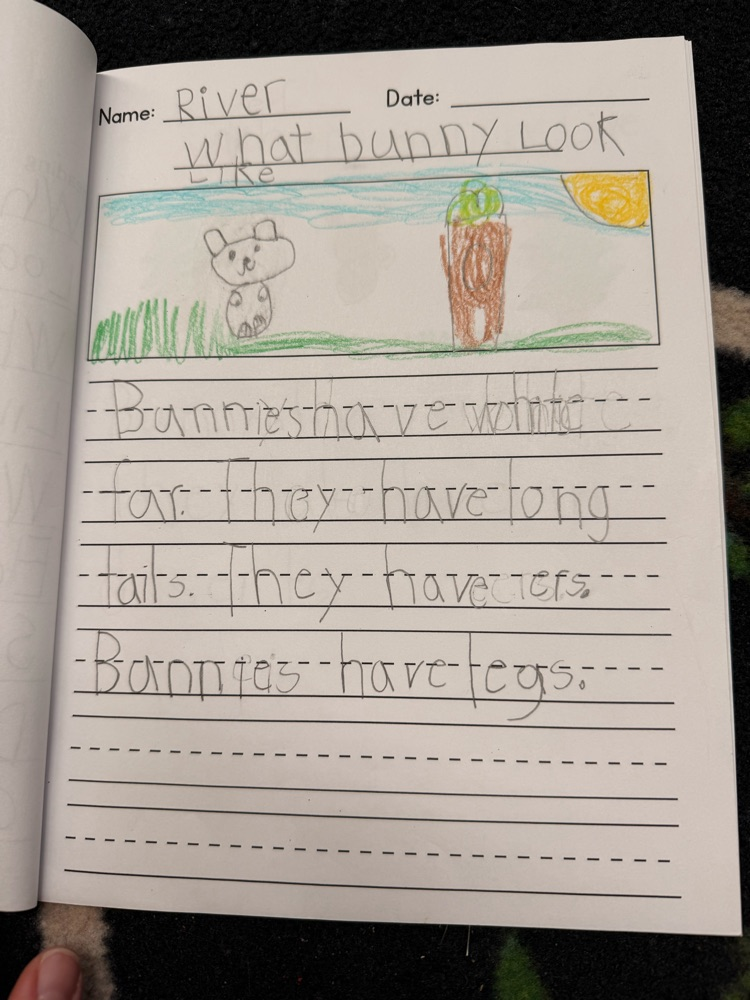 Name: River Date:
What bunny Look
Like
Bunnies have white
far. They have long
tails. They have iers.
Bannies have legs.